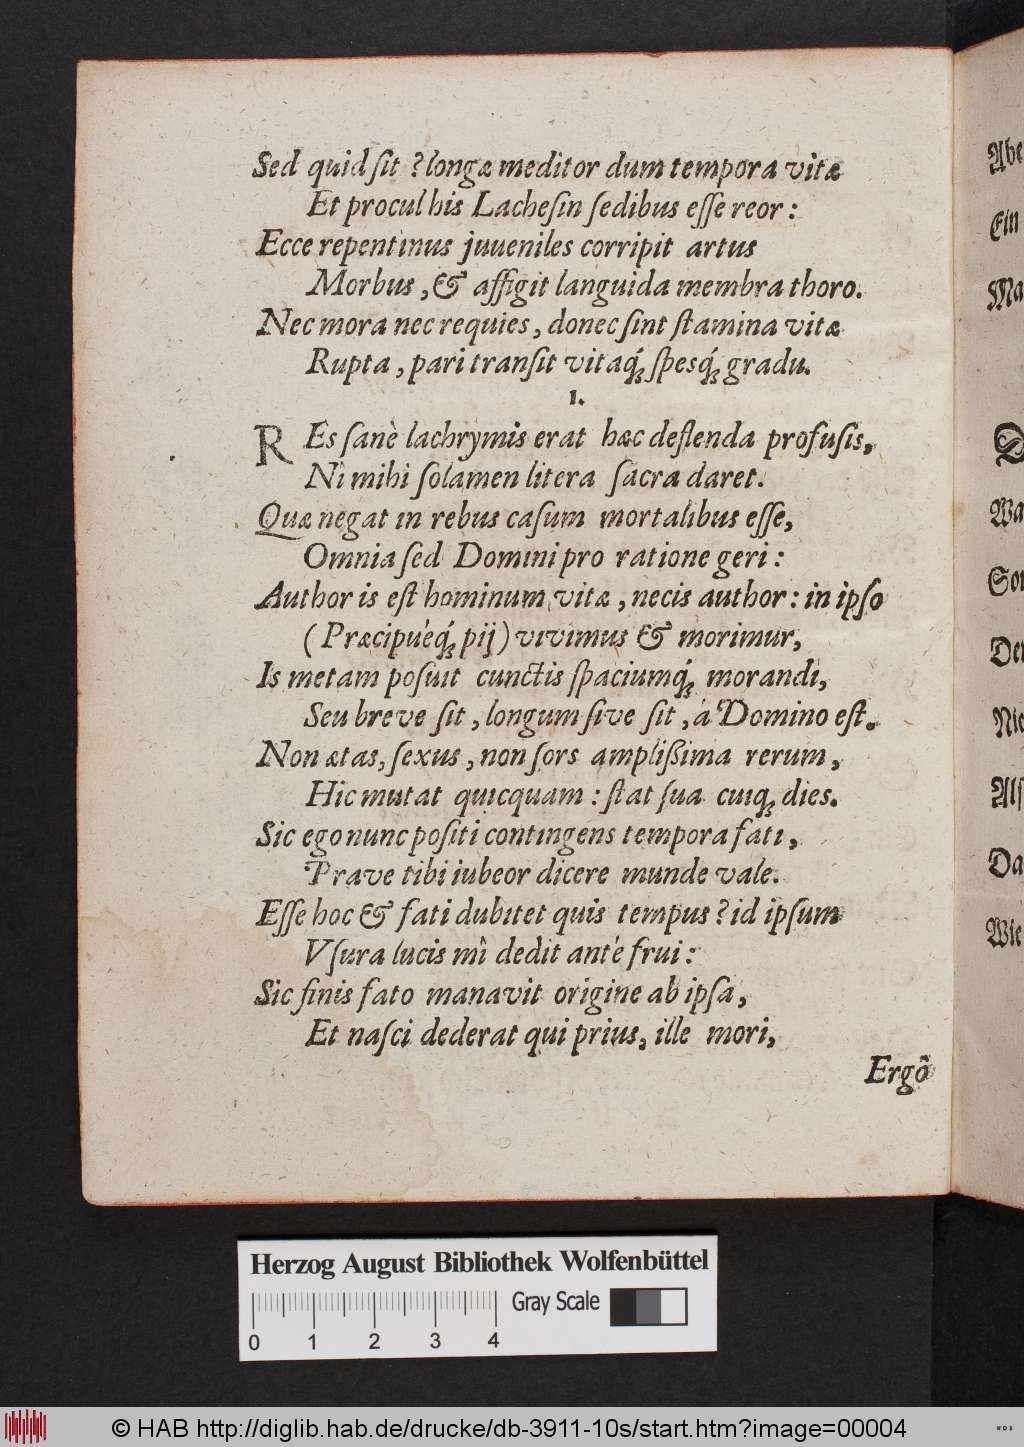 Sed quid ſit ? longæ meditor dum tempora vitæ
Et procul his Lacheſin ſedibus eſſe reor :
Ecce repentinus juueniles corripit artus
Morbus , & affigit languida membra thoro.
Nec mora nec requies , donec ſint ſtamina vitæ
Rupta , pari tranſit vitaq́ꝫ ſpesq́ꝫ gradu.
1.
REs ſanè lachrymis erat hæc deflenda profuſis,
Nî mihi ſolamen litera ſacra daret.
Quæ negat in rebus caſum mortalibus eſſe,
Omnia ſed Domini pro ratione geri :
Author is eſt hominum vitæ , necis author : in ipſo
( Præcipuèq́ꝫ pij ) vivimus & morimur,
Is metam poſuit cunctis ſpaciumq́ꝫ morandi,
Seu breve ſit , longum ſive ſit , á Domino eſt.
Non ætas, ſexus , non ſors ampliſsima rerum ,
Hic mutat quicquam : ſtat ſua cuiqꝫ dies.
Sic ego nunc poſiti contingens tempora fati ,
Prave tibi iubeor dicere munde vale.
Eſſe hoc & fati dubitet quis tempus ? id ipſum
Vſura lucis mî dedit antè frui :
Sic finis fato manavit origine ab ipſa ,
Et naſci dederat qui prius, ille mori,
Ergõ
Abe
Ein
Ma
D
Wa
Son
Den
Nie
Alſ
Da
Wie
Herzog August Bibliothek Wolfenbüttel
Gray Scale
0 1 2 3 4
© HAB http://diglib.hab.de/drucke/db-3911-10s/start.htm?image=00004